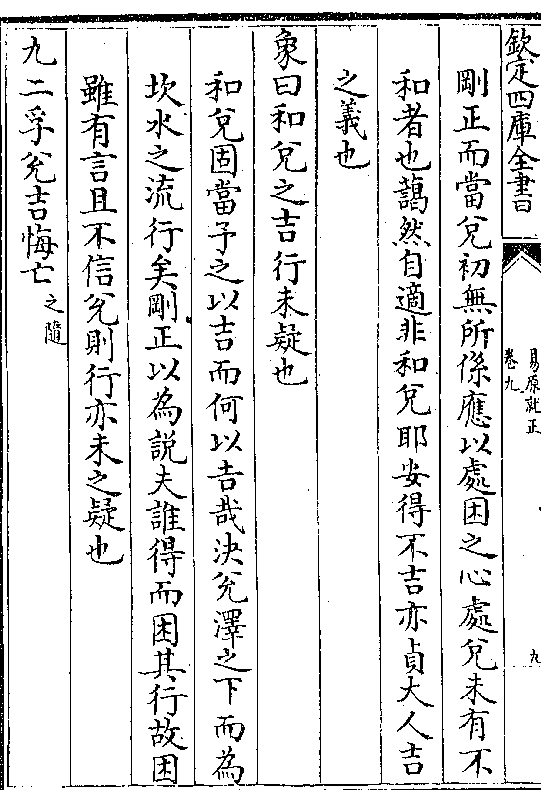 欽定四庫全書
易原就正
卷九
九
剛正而當兌初無所係應以處困之心處兌未有不
和者也藹然自適非和兌耶安得不吉亦貞大人吉
之義也
象曰和兌之吉行未疑也
和兌固當予之以吉而何以吉哉決兌澤之下而為
坎水之流行矣剛正以為説夫誰得而困其行故困
雖有言且不信兌則行亦未之疑也
九二孚兌吉悔亡之隨